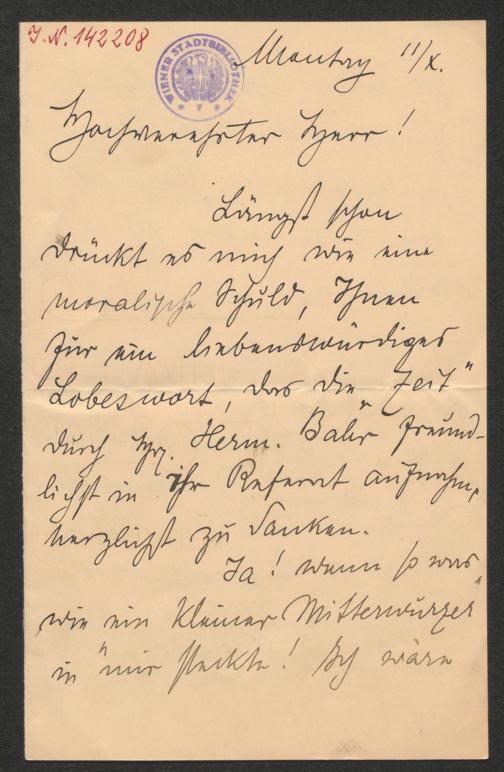 I. N. 142208
WIENER STADTBIBLIOTHEK
* 7 *
Montag 11/X.
Hochverehrter Herr!
Längst schon
drückt es mich wie eine
moralische Schuld, Ihnen
für ein liebenswürdiges
Lobeswort, das die „Zeit"
durch Hrn. Herm. Bahr freund-
lichst in ihr Referat aufnahm,
herzlichst zu danken.
Ja! wenn so was
wie ein „kleiner Mitterwurzer"
in mir steckte! Ich wäre